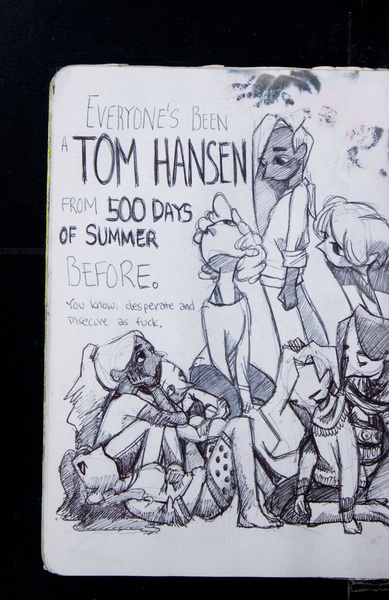 EVERYONE'S BEEN
A TOM HANSEN
FROM 500 DAYS
OF SUMMER
BEFORE.
You know, desperate and
insecure as fuck.